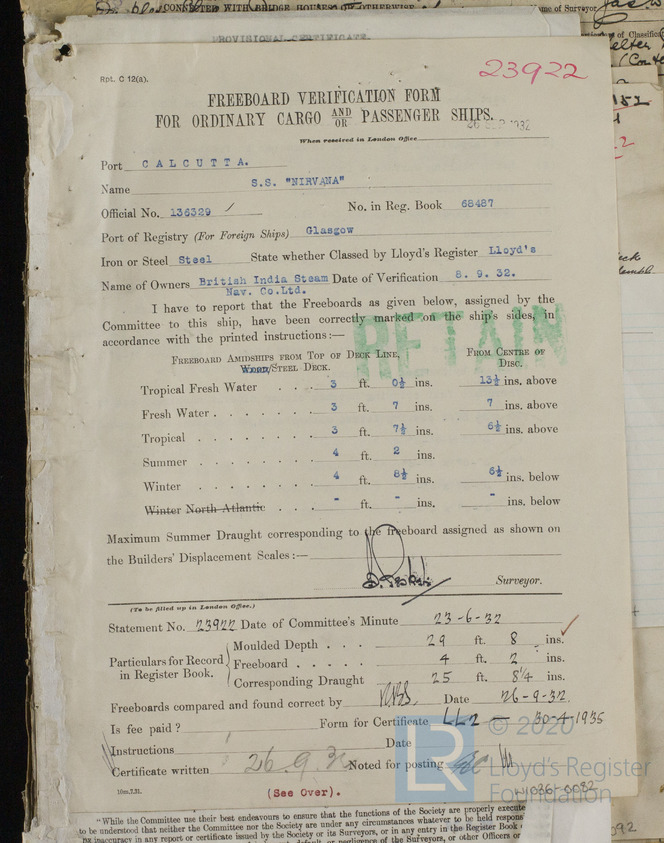 CONNECTED WITH BRIDGE HOUSES OR OTHERWISE
me of Surveyor
PROVISIONAL CERTIFICATE.
of Classifica
Rpt. C 12(a).
23922
FREEBOARD VERIFICATION FORM
FOR ORDINARY CARGO AND/OR PASSENGER SHIPS.
26 SEP 1932
When received in London Office
Port CALCUTTA.
Name S.S. "NIRVANA"
Official No. 136329 / No. in Reg. Book 68487
Port of Registry (For Foreign Ships) Glasgow
Iron or Steel Steel State whether Classed by Lloyd's Register Lloyd's
Name of Owners British India Steam Nav. Co.Ltd. Date of Verification 8. 9. 32.
I have to report that the Freeboards as given below, assigned by the
Committee to this ship, have been correctly marked on the ship's sides, in
accordance with the printed instructions:—
RETAIN
FREEBOARD AMIDSHIPS FROM TOP OF DECK LINE, FROM CENTRE OF
WOOD/STEEL DECK. DISC.
Tropical Fresh Water . . . 3 ft. 0½ ins. 13½ ins. above
Fresh Water . . . . . . . 3 ft. 7 ins. 7 ins. above
Tropical . . . . . . . . 3 ft. 7½ ins. 6½ ins. above
Summer . . . . . . . . 4 ft. 2 ins.
Winter . . . . . . . . 4 ft. 8½ ins. 6½ ins. below
Winter North Atlantic . . . - ft. - ins. - ins. below
Maximum Summer Draught corresponding to the freeboard assigned as shown on
the Builders' Displacement Scales:—
Surveyor.
(To be filled up in London Office.)
Statement No. 23922 Date of Committee's Minute 23-6-32
Particulars for Record in Register Book.
Moulded Depth . . . 29 ft. 8 ins.
Freeboard . . . . . 4 ft. 2 ins.
Corresponding Draught 25 ft. 8¼ ins.
Freeboards compared and found correct by Date 26-9-32.
Is fee paid? Form for Certificate LL2 — 30-4-1935
Instructions Date
Certificate written 26.9.32 Noted for posting
10m,7,31.
(See Over).
LR © 2020
Lloyd's Register
Foundation
W1036-0092
"While the Committee use their best endeavours to ensure that the functions of the Society are properly execute
to be understood that neither the Committee nor the Society are under any circumstances whatever to be held respons
inaccuracy in any report or certificate issued by the Society or its Surveyors, or in any entry in the Register Book
default or negligence of the Surveyors, or other Officers or